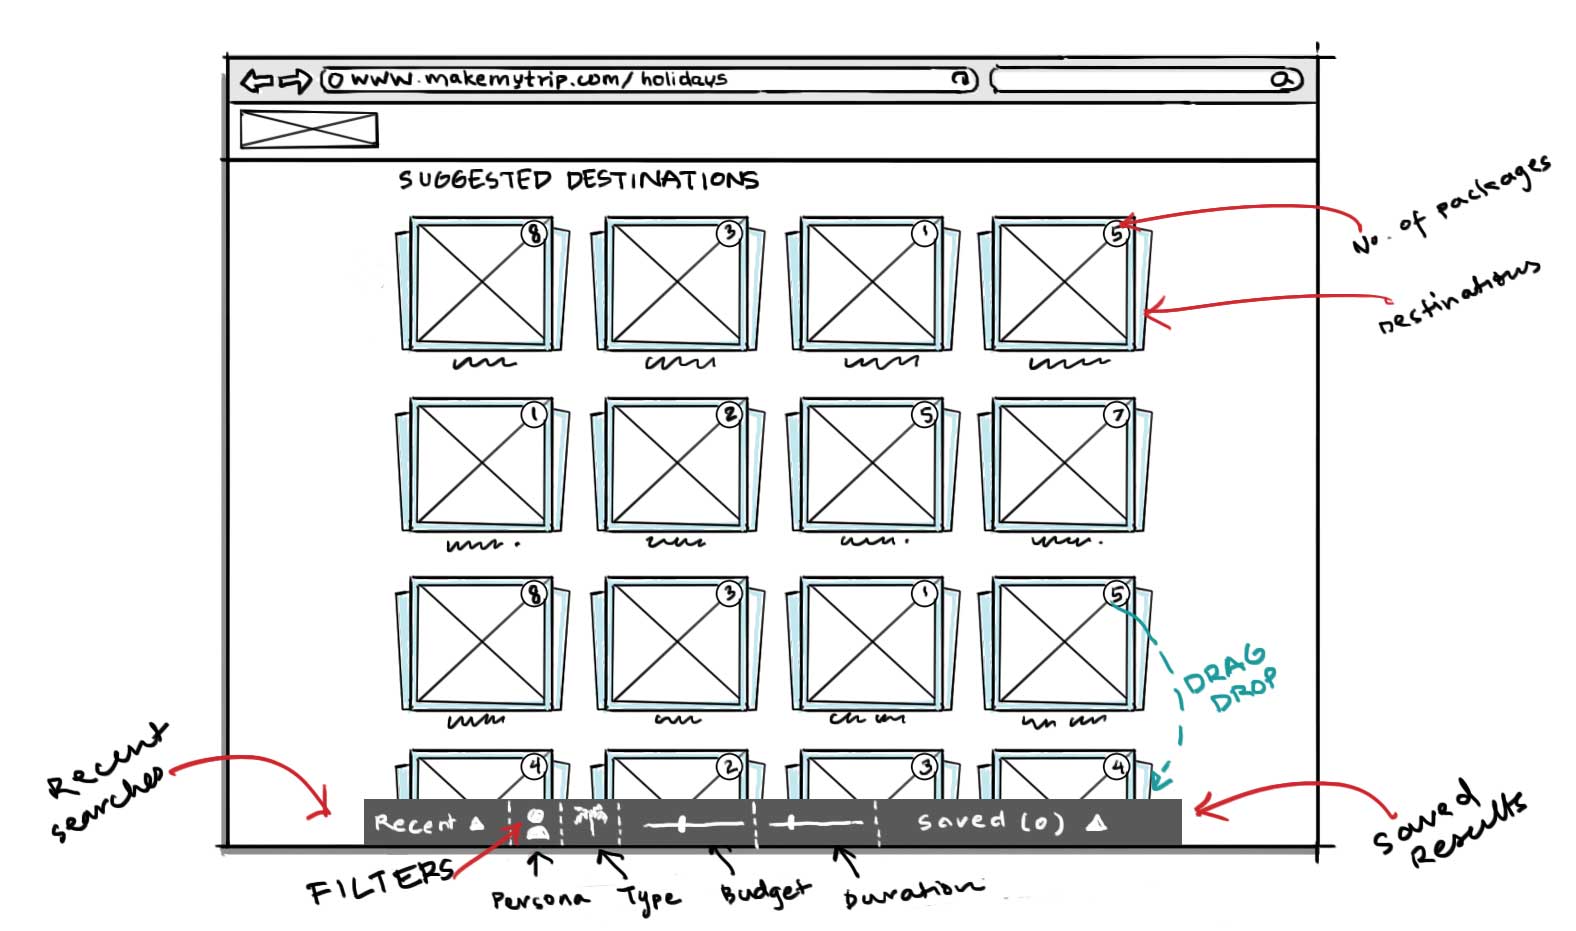 www.makemytrip.com/holidays
SUGGESTED DESTINATIONS
No. of packages
Destinations
8 3 1 5
1 2 5 7
8 3 1 5
DRAG
DROP
4 2 3 4
Recent
searches
Recent Saved (0)
Saved
Results
FILTERS
Persona Type Budget Duration